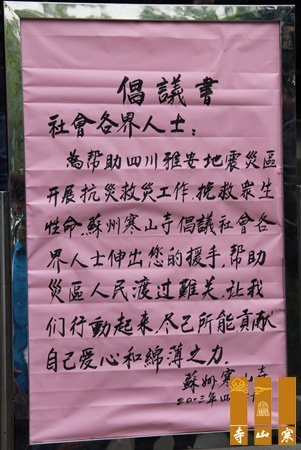 倡議書
社會各界人士：
為帮助四川雅安地震災區
开展抗災救災工作,挽救衆生
性命,蘇州寒山寺倡議社會各
界人士伸出您的援手,帮助
災區人民渡过難关,让我
们行動起來,尽己所能貢献
自己爱心和綿薄之力.
蘇州寒山寺
2013年四
寒山寺